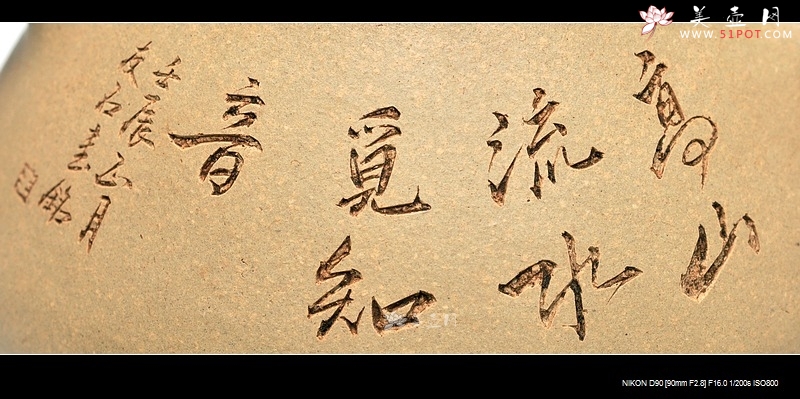 美壶网
WWW.51POT.COM
高山
流水
覓知
音
壬辰正月
友石壶銘
NIKON D90 [90mm F2.8] F16.0 1/200s ISO800